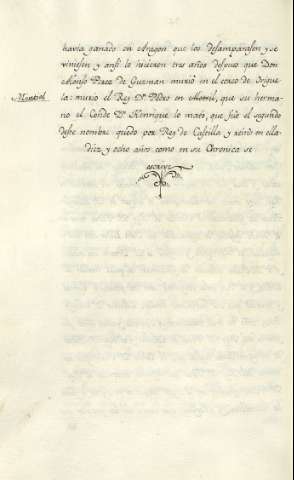 havia ganado en Aragon que los desamparasen y se
viniesen y ansi lo hicieron tres años despues que Don
Alonso Perez de Guzman murió en el cerco de Origue
Montiel
la: murio el Rey Dn. Pedro en Montiel, que su herma-
no el Conde Dn. Henrique lo mató, que fué el segundo
deste nombre quedó por Rey de Castilla y reinó en ella
diez y ocho años como en su Chronica se
escrive